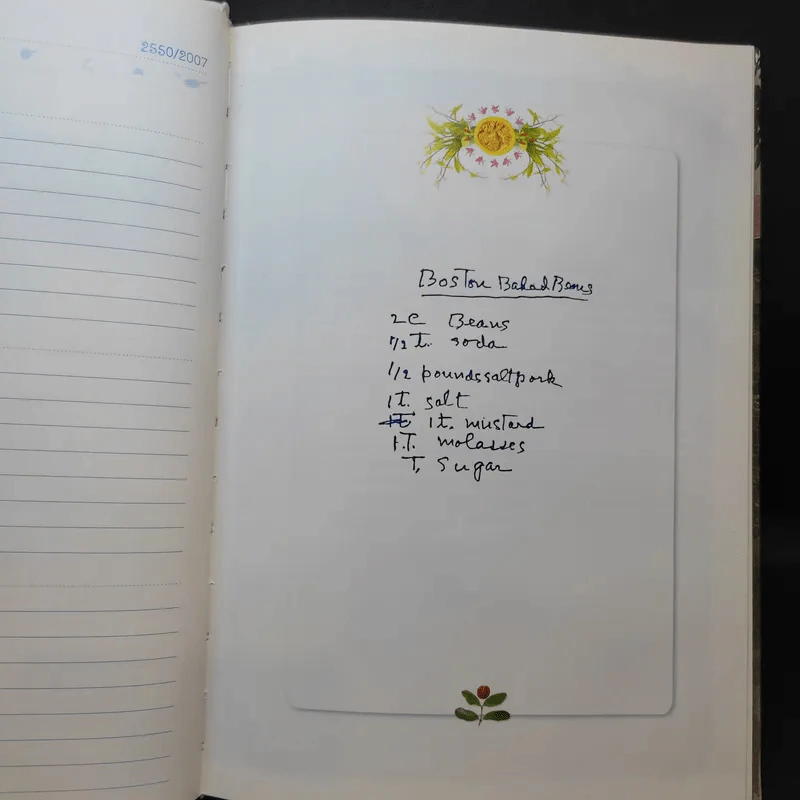 2550/2007
Boston Baked Beans
2C Beans
1/2 t. soda
1/2 pounds saltpork
1T. salt
1t. mustard
1.T. molasses
T. Sugar